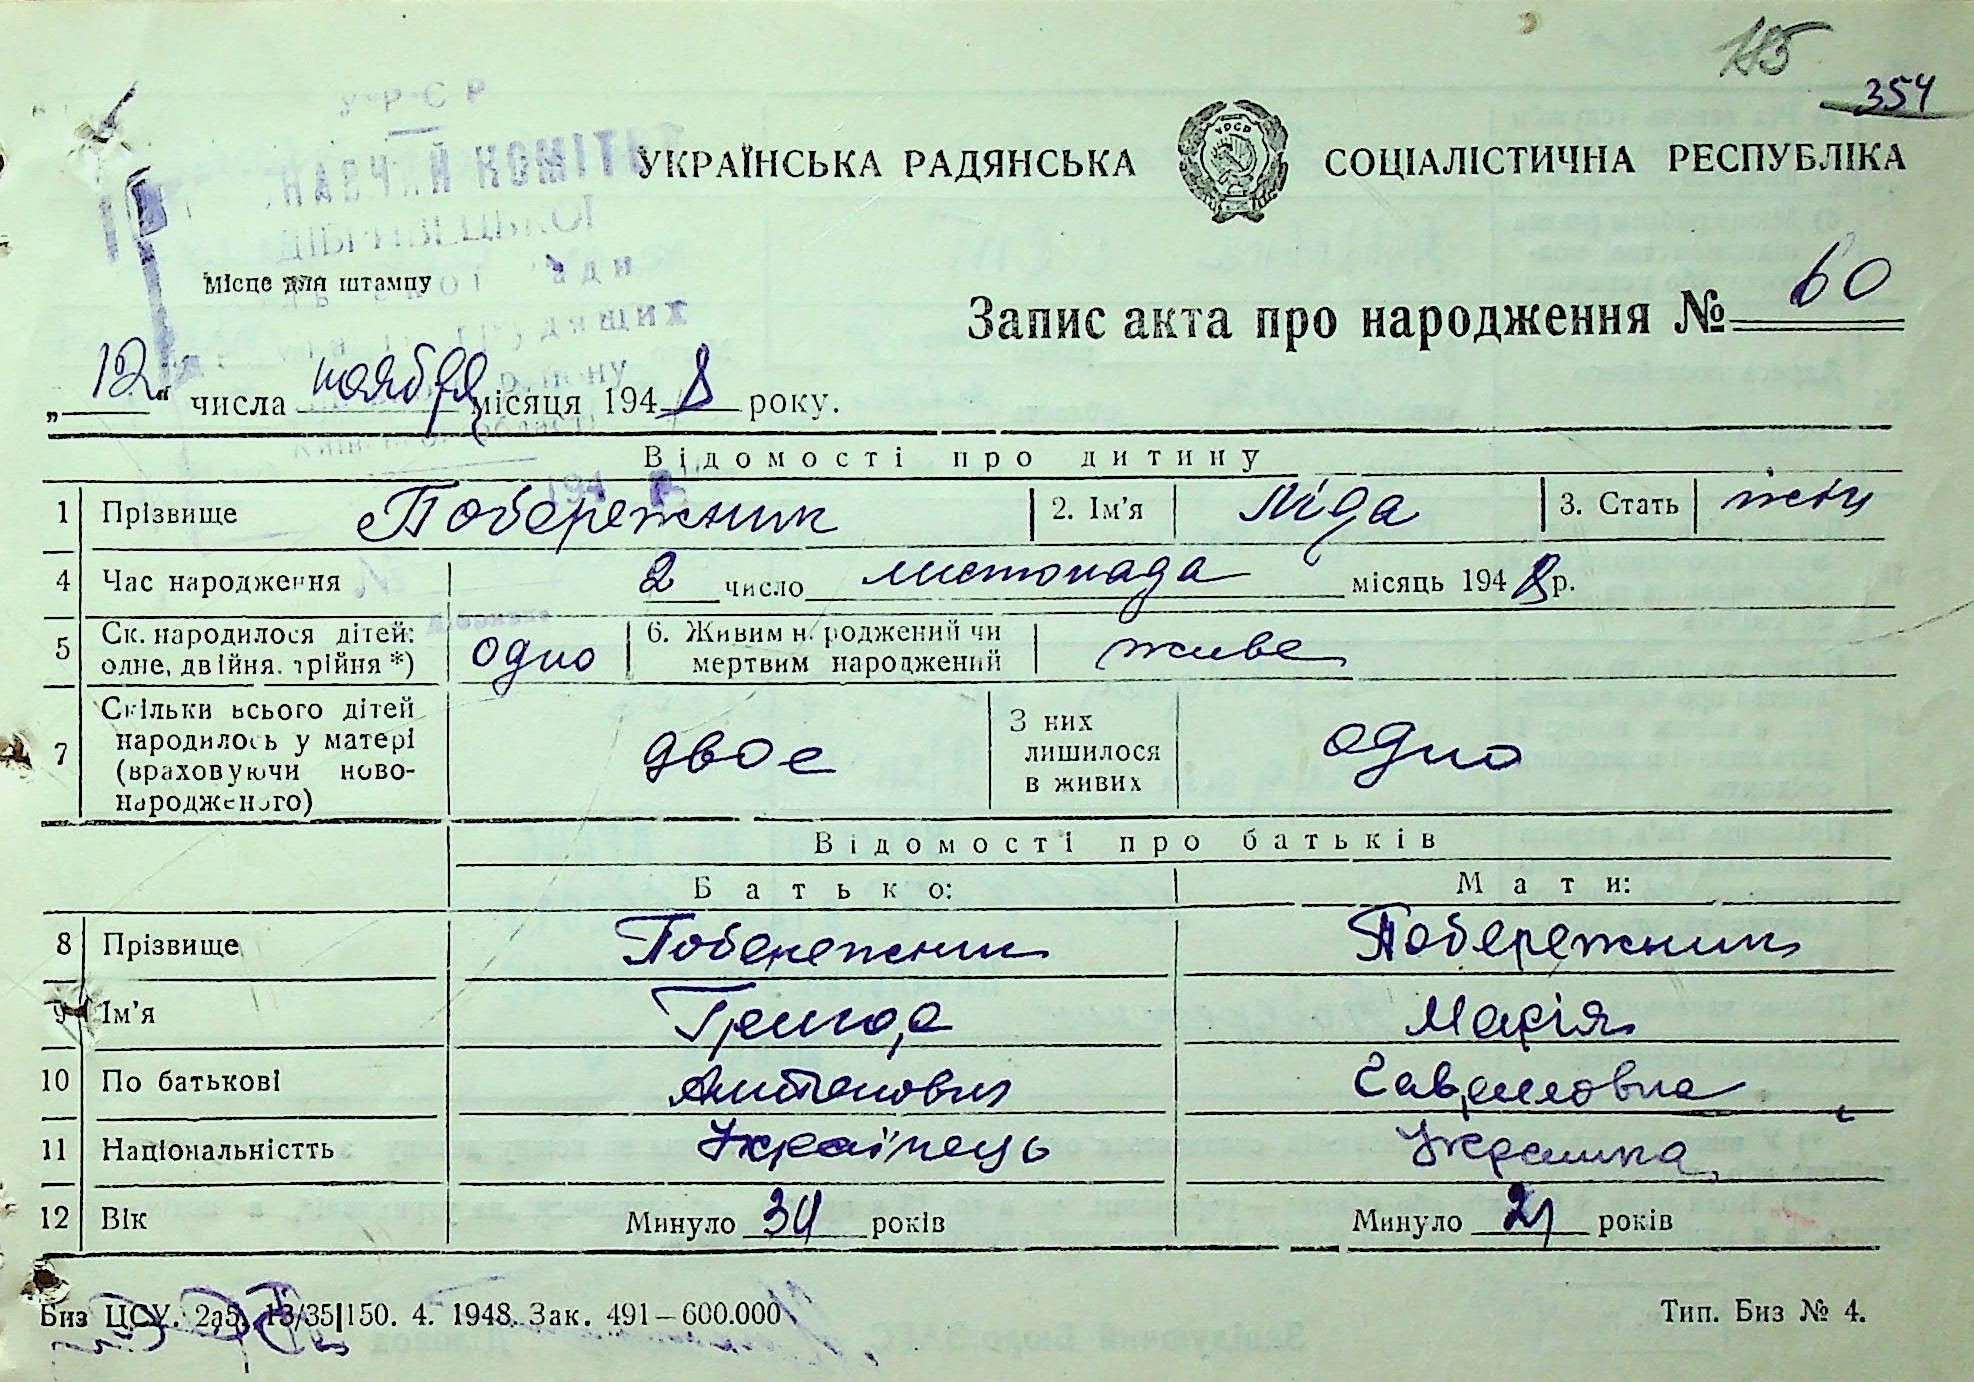 354
УКРАЇНСЬКА РАДЯНСЬКА СОЦІАЛІСТИЧНА РЕСПУБЛІКА
УРСР
Місце для штампу
Запис акта про народження № 60
„12“ числа ноября місяця 1948 року.
Відомості про дитину
1 Прізвище Побережник 2. Ім'я Ліда 3. Стать жін
4 Час народження 2 число листопада місяць 1948 р.
5 Ск. народилося дітей: одне, двійня, трійня *) одно 6. Живим народжений чи мертвим народжений живе
7 Скільки всього дітей народилось у матері (враховуючи новонародженого) двоє З них лишилося в живих одно
Відомості про батьків
Батько: Мати:
8 Прізвище Побережник Побережник
9 Ім'я Григор Марія
10 По батькові Антонович Гавриловна
11 Національністть Українець Украинка
12 Вік Минуло 34 років Минуло 21 років
Биз ЦСУ. 2а5. 13/35|150. 4. 1948. Зак. 491–600.000 Тип. Биз № 4.